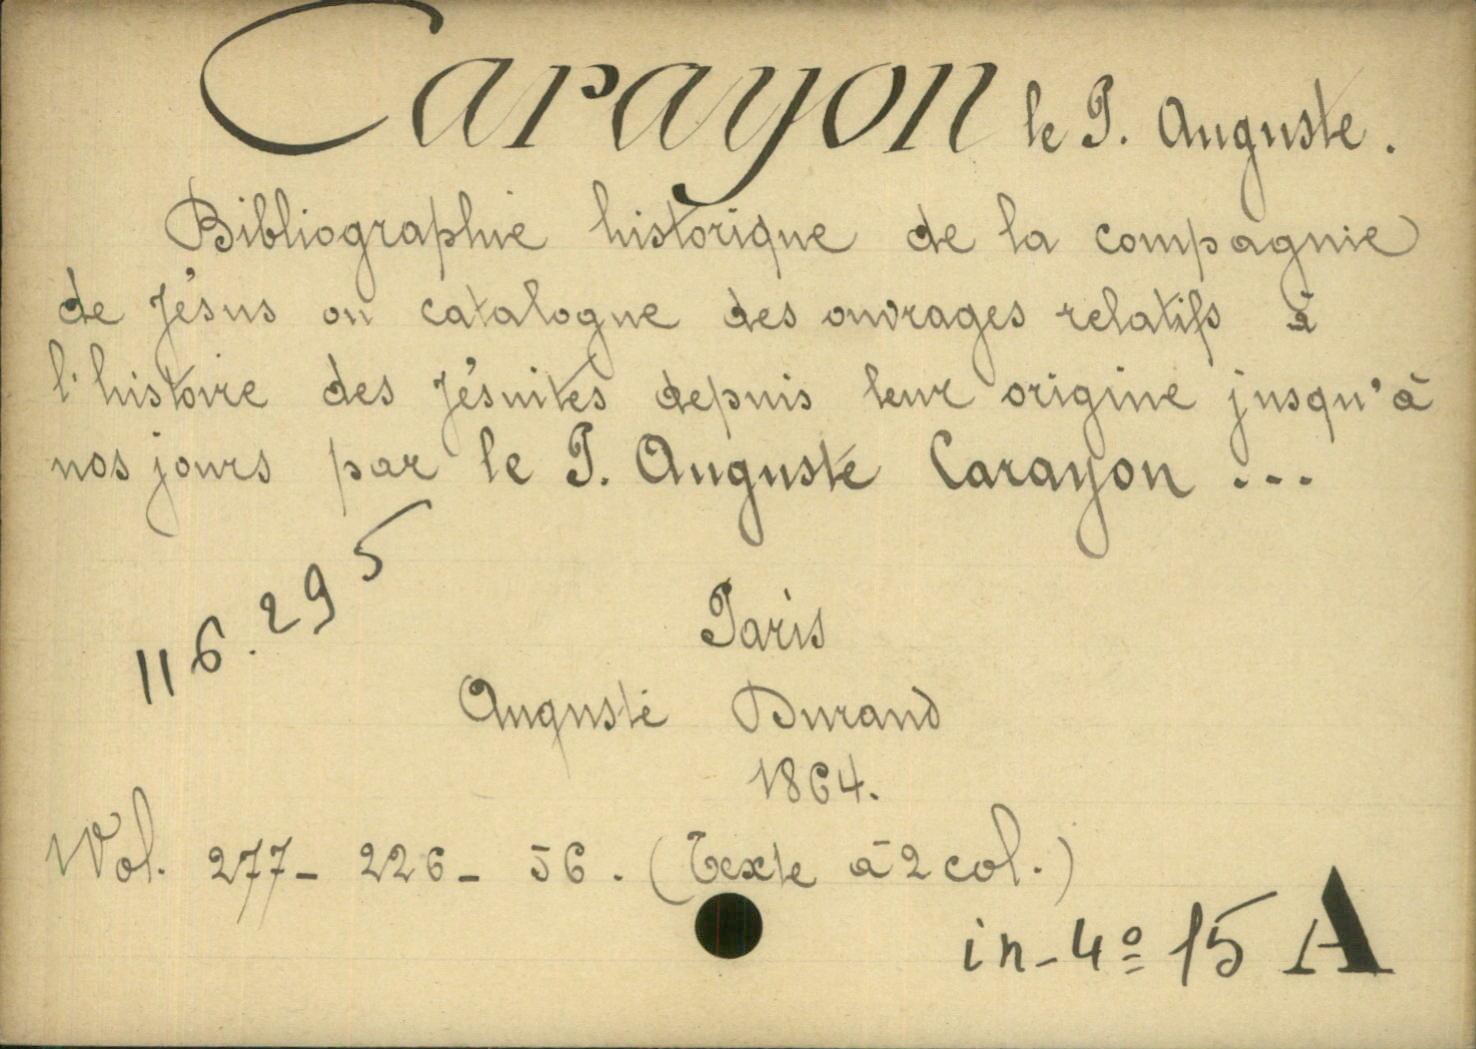 Carayon le P. Auguste.
Bibliographie historique de la compagnie
de Jésus ou catalogue des ouvrages relatifs à
l'histoire des Jésuites depuis leur origine jusqu'à
nos jours par le P. Auguste Carayon ...
116.295
Paris
Auguste Durand
1864.
1 Vol. 277- 226- 56. (Texte à 2 col.)
in-4º 15 A